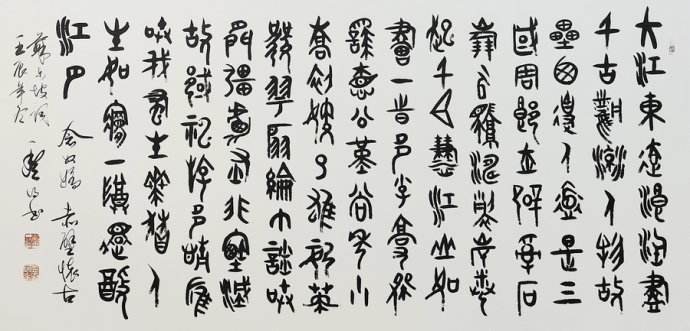 大江東去浪淘盡
千古風流人物故
壘西邊人道是三
國周郎赤壁亂石
崩云驚濤裂岸捲
起千堆雪江山如
畫一時多少豪傑
遙想公瑾當年小
喬初嫁了雄姿英
發羽扇綸巾談笑
間強虜灰飛煙滅
故國神游多情應
笑我早生華髮人
生如夢一樽還酹
江月 念奴嬌 赤壁懷古
蘇東坡詞
壬辰年